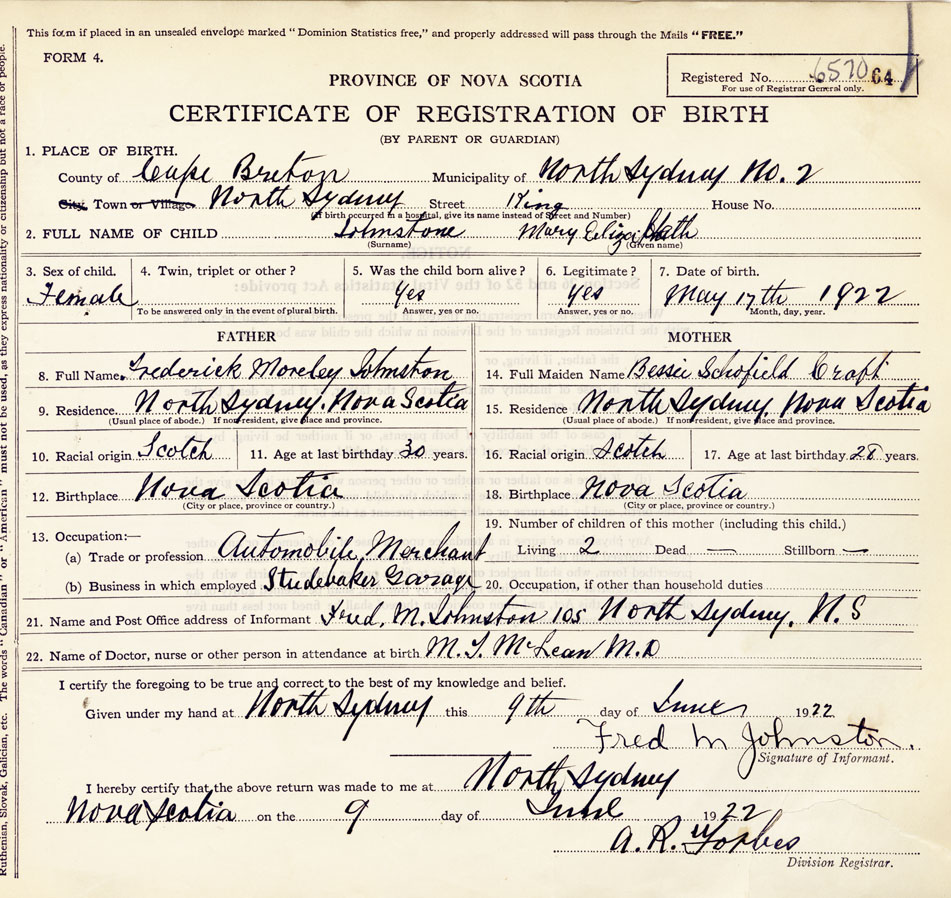 This form if placed in an unsealed envelope marked "Dominion Statistics free," and properly addressed will pass through the Mails "FREE."
FORM 4.
Registered No. 6570 64
For use of Registrar General only.
PROVINCE OF NOVA SCOTIA
CERTIFICATE OF REGISTRATION OF BIRTH
(BY PARENT OR GUARDIAN)
1. PLACE OF BIRTH.
County of Cape Breton Municipality of North Sydney No. 2
City, Town or Village. North Sydney Street King House No.
(If birth occurred in a hospital, give its name instead of Street and Number)
2. FULL NAME OF CHILD Johnstone Mary Elizabeth
(Surname) (Given name)
3. Sex of child. 4. Twin, triplet or other? 5. Was the child born alive? 6. Legitimate? 7. Date of birth.
Female Yes Yes May 17th 1922
To be answered only in the event of plural birth. Answer, yes or no. Answer, yes or no. Month, day, year.
FATHER MOTHER
8. Full Name. Frederick Moreley Johnston 14. Full Maiden Name Bessie Schofield Craft
9. Residence. North Sydney. Nova Scotia 15. Residence North Sydney, Nova Scotia
(Usual place of abode.) If non-resident, give place and province. (Usual place of abode.) If non-resident, give place and province.
10. Racial origin Scotch 11. Age at last birthday 30 years. 16. Racial origin Scotch 17. Age at last birthday 28 years.
12. Birthplace Nova Scotia 18. Birthplace Nova Scotia
(City or place, province or country.) (City or place, province or country.)
13. Occupation:— 19. Number of children of this mother (including this child.)
(a) Trade or profession Automobile, Merchant Living 2 Dead — Stillborn —
(b) Business in which employed Studebaker Garage 20. Occupation, if other than household duties
21. Name and Post Office address of Informant Fred. M. Johnston 105 North Sydney, N.S
22. Name of Doctor, nurse or other person in attendance at birth M. T. McLean M.D
I certify the foregoing to be true and correct to the best of my knowledge and belief.
Given under my hand at North Sydney this 9th day of June 1922.
Fred M Johnston.
Signature of Informant.
I hereby certify that the above return was made to me at North Sydney
Nova Scotia on the 9 day of June 1922
A. R. Forbes
Division Registrar.
Ruthenian, Slovak, Galician, etc. The words "Canadian" or "American" must not be used, as they express nationality or citizenship but not a race or people.